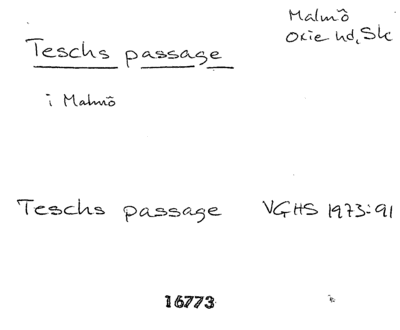 Malmö
Oxie hd, Sk
Teschs passage
i Malmö
Teschs passage VGHS 1973:91
16773